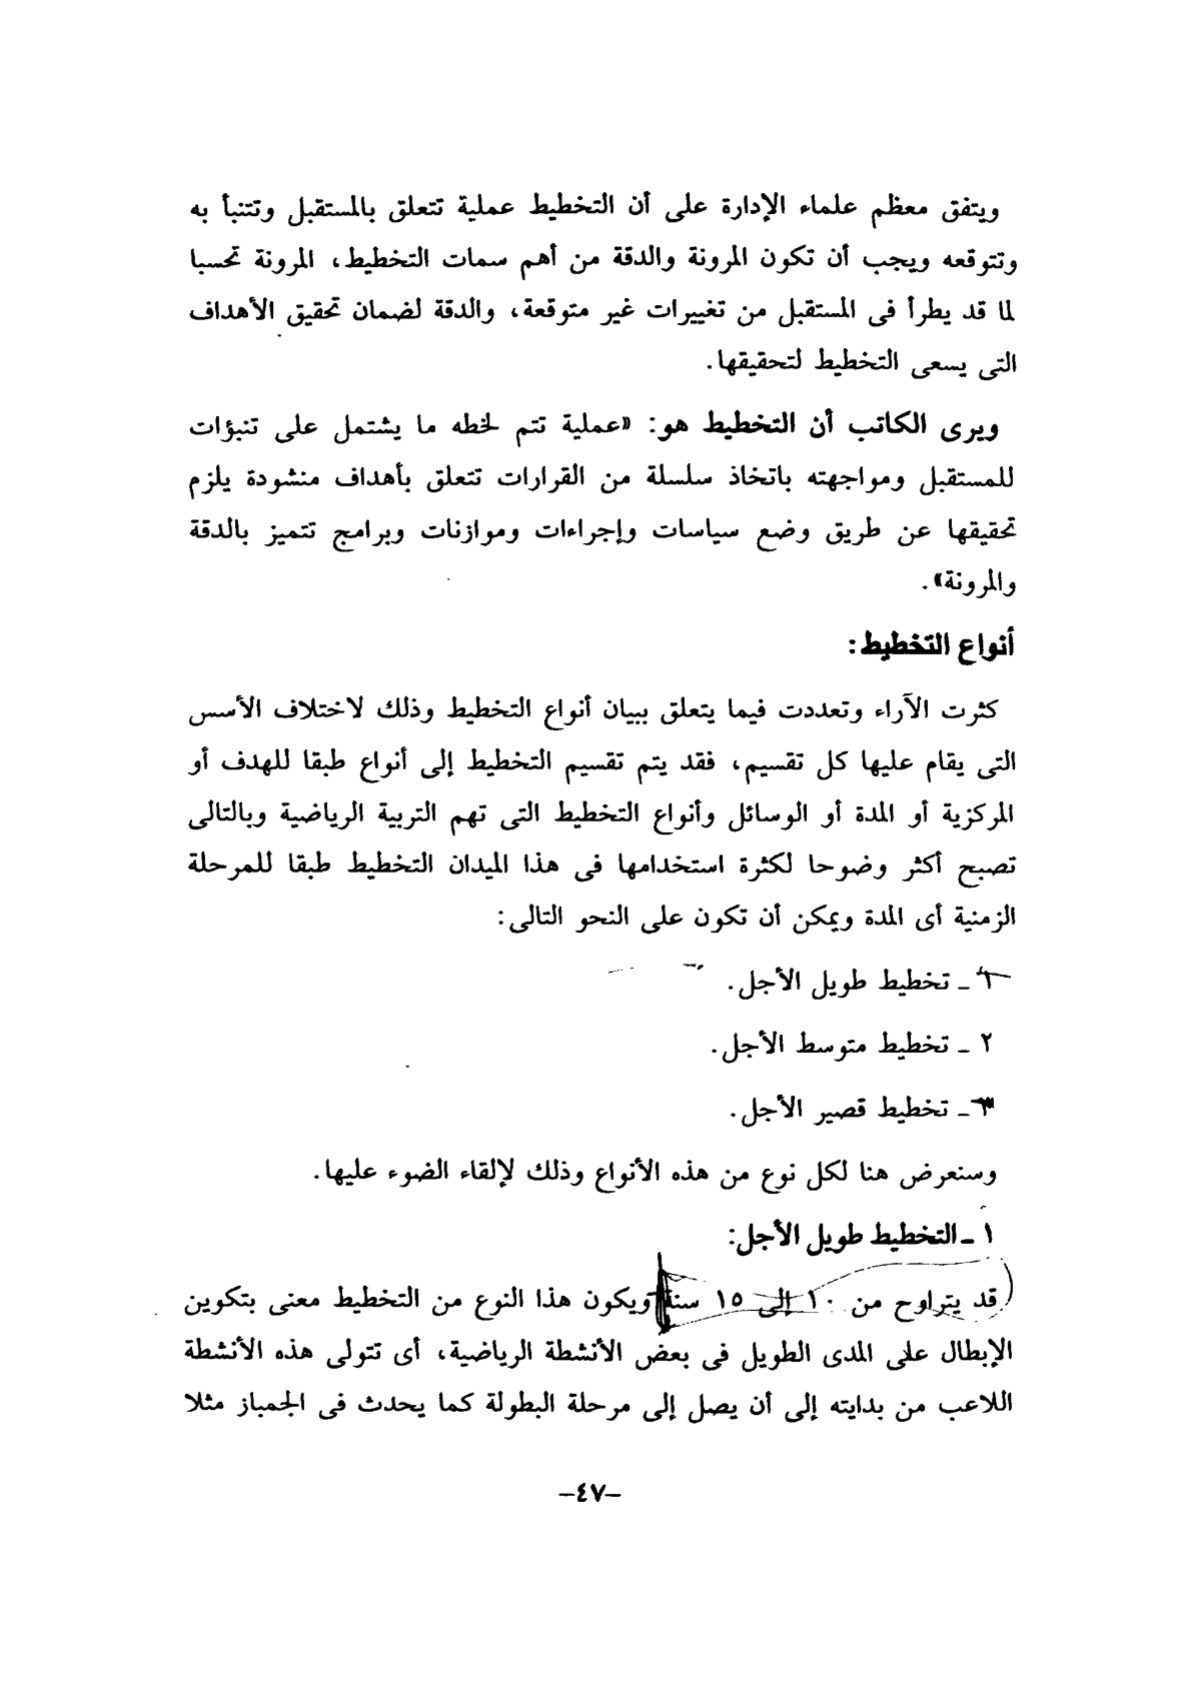 ويتفق معظم علماء الإدارة على أن التخطيط عملية تتعلق بالمستقبل وتتنبأ به
وتتوقعه ويجب أن تكون المرونة والدقة من أهم سمات التخطيط، المرونة تحسبا
لما قد يطرأ فى المستقبل من تغييرات غير متوقعة، والدقة لضمان تحقيق الأهداف
التى يسعى التخطيط لتحقيقها.
ويرى الكاتب أن التخطيط هو: «عملية تتم لخطه ما يشتمل على تنبؤات
للمستقبل ومواجهته باتخاذ سلسلة من القرارات تتعلق بأهداف منشودة يلزم
تحقيقها عن طريق وضع سياسات وإجراءات وموازنات وبرامج تتميز بالدقة
والمرونة».
أنواع التخطيط:
كثرت الآراء وتعددت فيما يتعلق ببيان أنواع التخطيط وذلك لاختلاف الأسس
التى يقام عليها كل تقسيم، فقد يتم تقسيم التخطيط إلى أنواع طبقا للهدف أو
المركزية أو المدة أو الوسائل وأنواع التخطيط التى تهم التربية الرياضية وبالتالى
تصبح أكثر وضوحا لكثرة استخدامها فى هذا الميدان التخطيط طبقا للمرحلة
الزمنية أى المدة ويمكن أن تكون على النحو التالى:
١ ـ تخطيط طويل الأجل.
٢ ـ تخطيط متوسط الأجل.
٣ ـ تخطيط قصير الأجل.
وسنعرض هنا لكل نوع من هذه الأنواع وذلك لإلقاء الضوء عليها.
١ ـ التخطيط طويل الأجل:
قد يتراوح من ١٠ إلى ١٥ سنة ويكون هذا النوع من التخطيط معنى بتكوين
الإبطال على المدى الطويل فى بعض الأنشطة الرياضية، أى تتولى هذه الأنشطة
اللاعب من بدايته إلى أن يصل إلى مرحلة البطولة كما يحدث فى الجمباز مثلا
–٤٧–